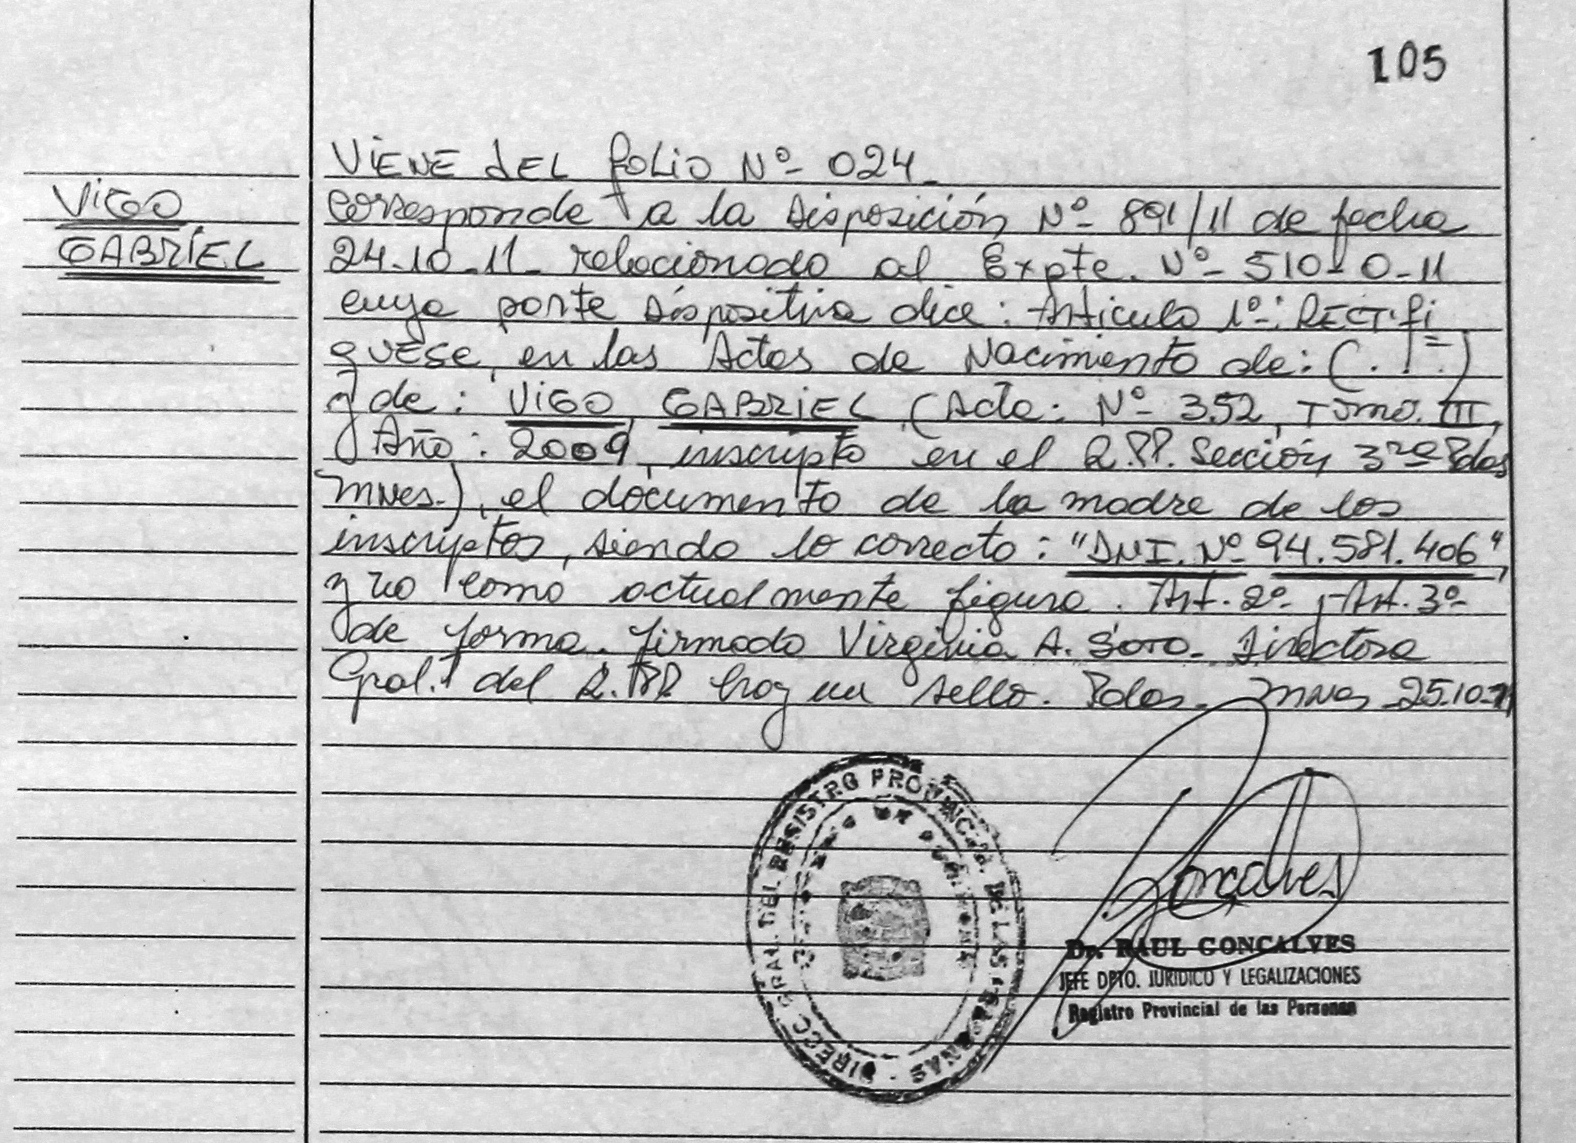 105
VIENE DEL folio Nº 024_
VIGO
GABRIEL
corresponde a la Disposición Nº 891/11 de fecha
24-10-11- relacionado al Expte. Nº 510-0-11
cuya parte dispositiva dice: Articulo 1º: RECTIFI
QUESE, en las Actas de Nacimiento de: (...)
y de: VIGO GABRIEL (Acta: Nº 352, Tomo. III,
Año: 2009, inscripto en el R.PP. Sección 3ra Pdas
MNes.), el documento de la madre de los
inscriptos, siendo lo correcto: "DNI. Nº 94.581.406",
y no como actualmente figura. Art. 2º, Art. 3º
de forma. Firmado Virginia A. Soto. Directora
Gral. del R.PP. hay un sello. Pdas. MNes 25.10.11
Goncalves
DIRECC. GRAL. DEL REGISTRO PROVINCIAL DE LAS PERSONAS
Dr. RAUL GONCALVES
JEFE DPTO. JURIDICO Y LEGALIZACIONES
Registro Provincial de las Personas